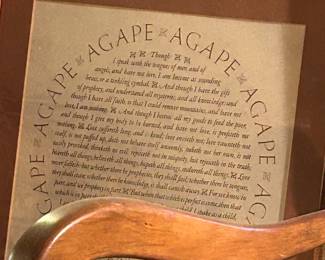 AGAPE AGAPE AGAPE AGAPE AGAPE
Though
I speak with the tongues of men, and of
angels, and have not love, I am become as sounding
brass, or a tinkling cymbal. And though I have the gift
of prophecy, and understand all mysteries, and all knowledge; and
though I have all faith, so that I could remove mountains, and have not
love, I am nothing. And though I bestow all my goods to feed the poor,
and though I give my body to be burned, and have not love, it profiteth me
nothing. Love suffereth long, and is kind; love envieth not; love vaunteth not
itself, is not puffed up, doth not behave itself unseemly, seeketh not her own, is not
easily provoked, thinketh no evil; rejoiceth not in iniquity, but rejoiceth in the truth;
beareth all things, believeth all things, hopeth all things, endureth all things. Love
never faileth: but whether there be prophecies, they shall fail; whether there be tongues,
they shall cease; whether there be knowledge, it shall vanish away. For we know in
part, and we prophesy in part. But when that which is perfect is come, then that
which is in part
child, I spake as a child,